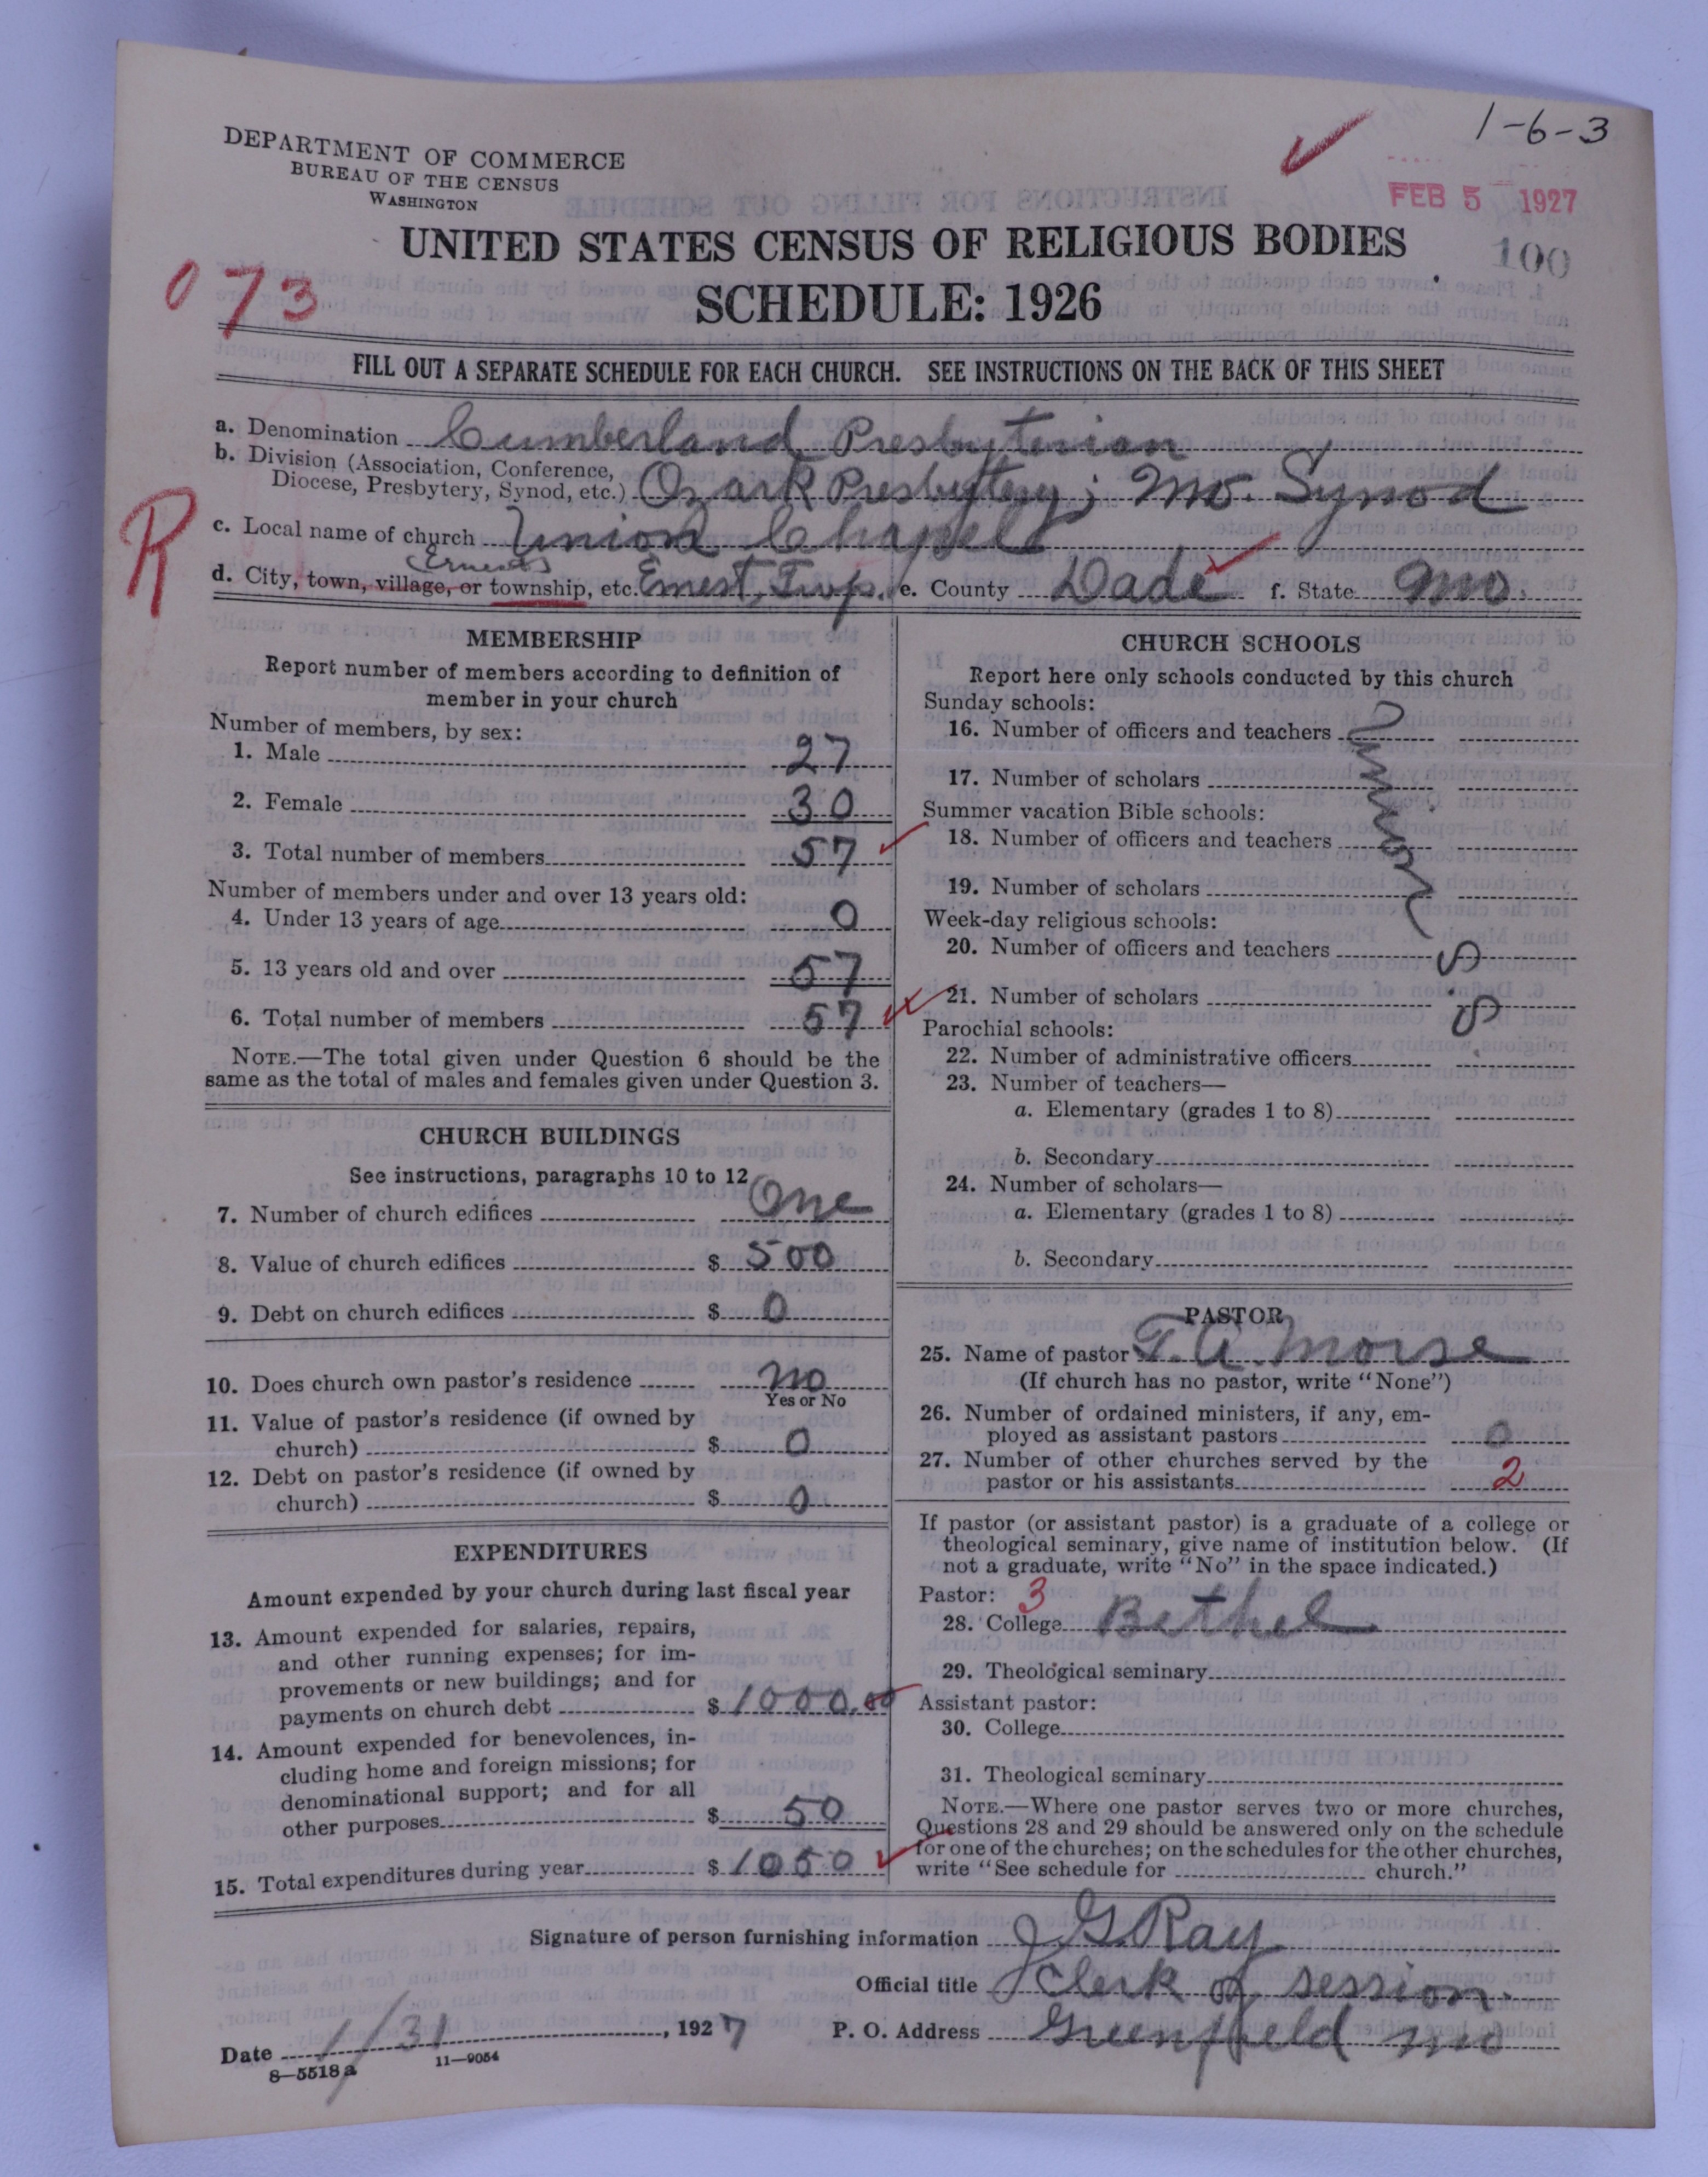 1-6-3
DEPARTMENT OF COMMERCE
BUREAU OF THE CENSUS
WASHINGTON
FEB 5 1927
100
UNITED STATES CENSUS OF RELIGIOUS BODIES
073
SCHEDULE: 1926
FILL OUT A SEPARATE SCHEDULE FOR EACH CHURCH. SEE INSTRUCTIONS ON THE BACK OF THIS SHEET
a. Denomination Cumberland Presbyterian
b. Division (Association, Conference,
Diocese, Presbytery, Synod, etc.) Ozark Presbytery; Mo. Synod
R
c. Local name of church Union Chapel
d. City, town, village, or township, etc. Ernest, Twp. e. County Dade f. State Mo.
MEMBERSHIP
Report number of members according to definition of
member in your church
Number of members, by sex:
1. Male 27
2. Female 30
3. Total number of members 57
Number of members under and over 13 years old:
4. Under 13 years of age 0
5. 13 years old and over 57
6. Total number of members 57
NOTE.—The total given under Question 6 should be the
same as the total of males and females given under Question 3.
CHURCH BUILDINGS
See instructions, paragraphs 10 to 12
7. Number of church edifices One
8. Value of church edifices $ 500
9. Debt on church edifices $ 0
10. Does church own pastor's residence no
Yes or No
11. Value of pastor's residence (if owned by
church) $ 0
12. Debt on pastor's residence (if owned by
church) $ 0
EXPENDITURES
Amount expended by your church during last fiscal year
13. Amount expended for salaries, repairs,
and other running expenses; for im-
provements or new buildings; and for
payments on church debt $ 1000.00
14. Amount expended for benevolences, in-
cluding home and foreign missions; for
denominational support; and for all
other purposes $ 50
15. Total expenditures during year $ 1050
CHURCH SCHOOLS
Report here only schools conducted by this church
Sunday schools:
16. Number of officers and teachers
17. Number of scholars
Summer vacation Bible schools:
18. Number of officers and teachers
19. Number of scholars
Week-day religious schools:
20. Number of officers and teachers
21. Number of scholars
Parochial schools:
22. Number of administrative officers
23. Number of teachers—
a. Elementary (grades 1 to 8)
b. Secondary
24. Number of scholars—
a. Elementary (grades 1 to 8)
b. Secondary
Union S.S.
PASTOR
25. Name of pastor T. A. Morse
(If church has no pastor, write "None")
26. Number of ordained ministers, if any, em-
ployed as assistant pastors 0
27. Number of other churches served by the
pastor or his assistants 2
If pastor (or assistant pastor) is a graduate of a college or
theological seminary, give name of institution below. (If
not a graduate, write "No" in the space indicated.)
Pastor: 3
28. College Bethel
29. Theological seminary
Assistant pastor:
30. College
31. Theological seminary
NOTE.—Where one pastor serves two or more churches,
Questions 28 and 29 should be answered only on the schedule
for one of the churches; on the schedules for the other churches,
write "See schedule for church."
Signature of person furnishing information J G Ray
Official title Clerk of session.
Date 1/31, 1927 P. O. Address Greenfield Mo
8—5518a 11—9054